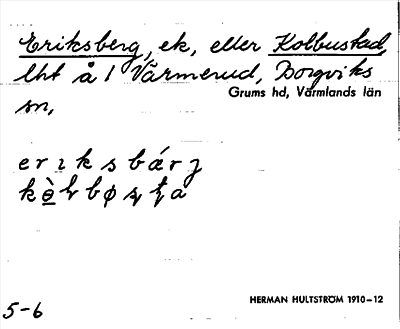 Eriksberg, ek, eller Kolbustad,
lht å 1 Värmerud, Borgviks
sn,
Grums hd, Värmlands län
erıksbárȷ
5-6
HERMAN HULTSTRÖM 1910–12